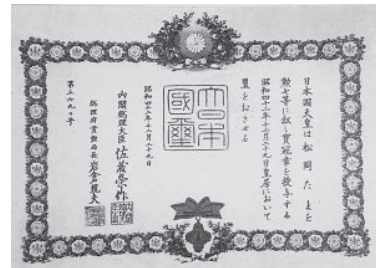 日本国天皇は松岡たまを
勲七等に叙し宝冠章を授与する
昭和四十二年十二月二十九日皇居において
璽をおさせる
大日本
國璽
昭和四十二年十二月二十九日
内閣総理大臣佐藤栄作
総理府賞勲局長岩倉規夫